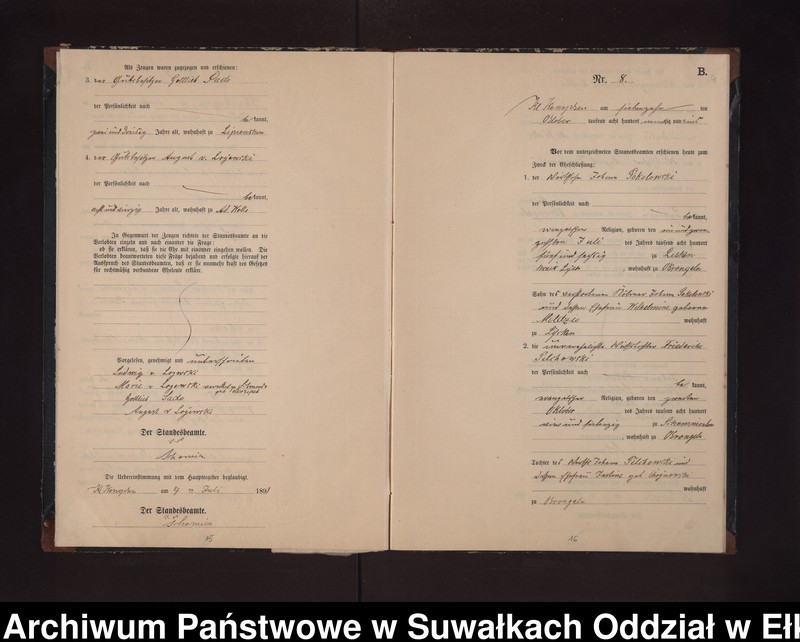 Als Zeugen waren zugezogen und erschienen:
3. der Gutsbesitzer Gottlieb Sado
der Persönlichkeit nach
be kannt,
zwei und dreißig Jahre alt, wohnhaft zu Lipinsken
4. der Gutsbesitzer August v. Lojewski
der Persönlichkeit nach
bekannt,
acht und vierzig Jahre alt, wohnhaft zu
In Gegenwart der Zeugen richtete der Standesbeamte an die
Verlobten einzeln und nach einander die Frage:
ob sie erklären, daß sie die Ehe mit einander eingehen wollen. Die
Verlobten beantworteten diese Frage bejahend und erfolgte hierauf der
Ausspruch des Standesbeamten, daß er sie nunmehr kraft des Gesetzes
für rechtmäßig verbundene Eheleute erkläre.
Vorgelesen, genehmigt und unterschrieben
Ludwig v Lojewski
Marie v Lojewski
Gottlieb Sado
August v Lojewski
Der Standesbeamte.
Die Uebereinstimmung mit dem Hauptregister beglaubigt.
am 9 ten Juli 1891
Der Standesbeamte.
15
B.
Nr. 8.
am siebenzehn ten
Oktober tausend acht hundert neunzig und eins
Vor dem unterzeichneten Standesbeamten erschienen heute zum
Zweck der Eheschließung:
1. der Johann Sokolowski
der Persönlichkeit nach
be kannt,
evangelischer Religion, geboren den ein und zwan
zigsten Juli des Jahres tausend acht hundert
fünf und sechzig zu Lisken
Kreis Lyck, wohnhaft zu Brongeln
Sohn des verstorbenen Johann Sokolowski
und dessen Ehefrau Wilhelmine geborene
wohnhaft
zu Lisken
2. die unverehelichte Friederike
Pilchowski
der Persönlichkeit nach
be kannt,
evangelischer Religion, geboren den zweiten
Oktober des Jahres tausend acht hundert
und siebenzig zu
, wohnhaft zu Brongeln
Tochter des Johann Pilchowski und
dessen Ehefrau geb
wohnhaft
zu Brongeln
16
Archiwum Państwowe w Suwałkach Oddział w Eł